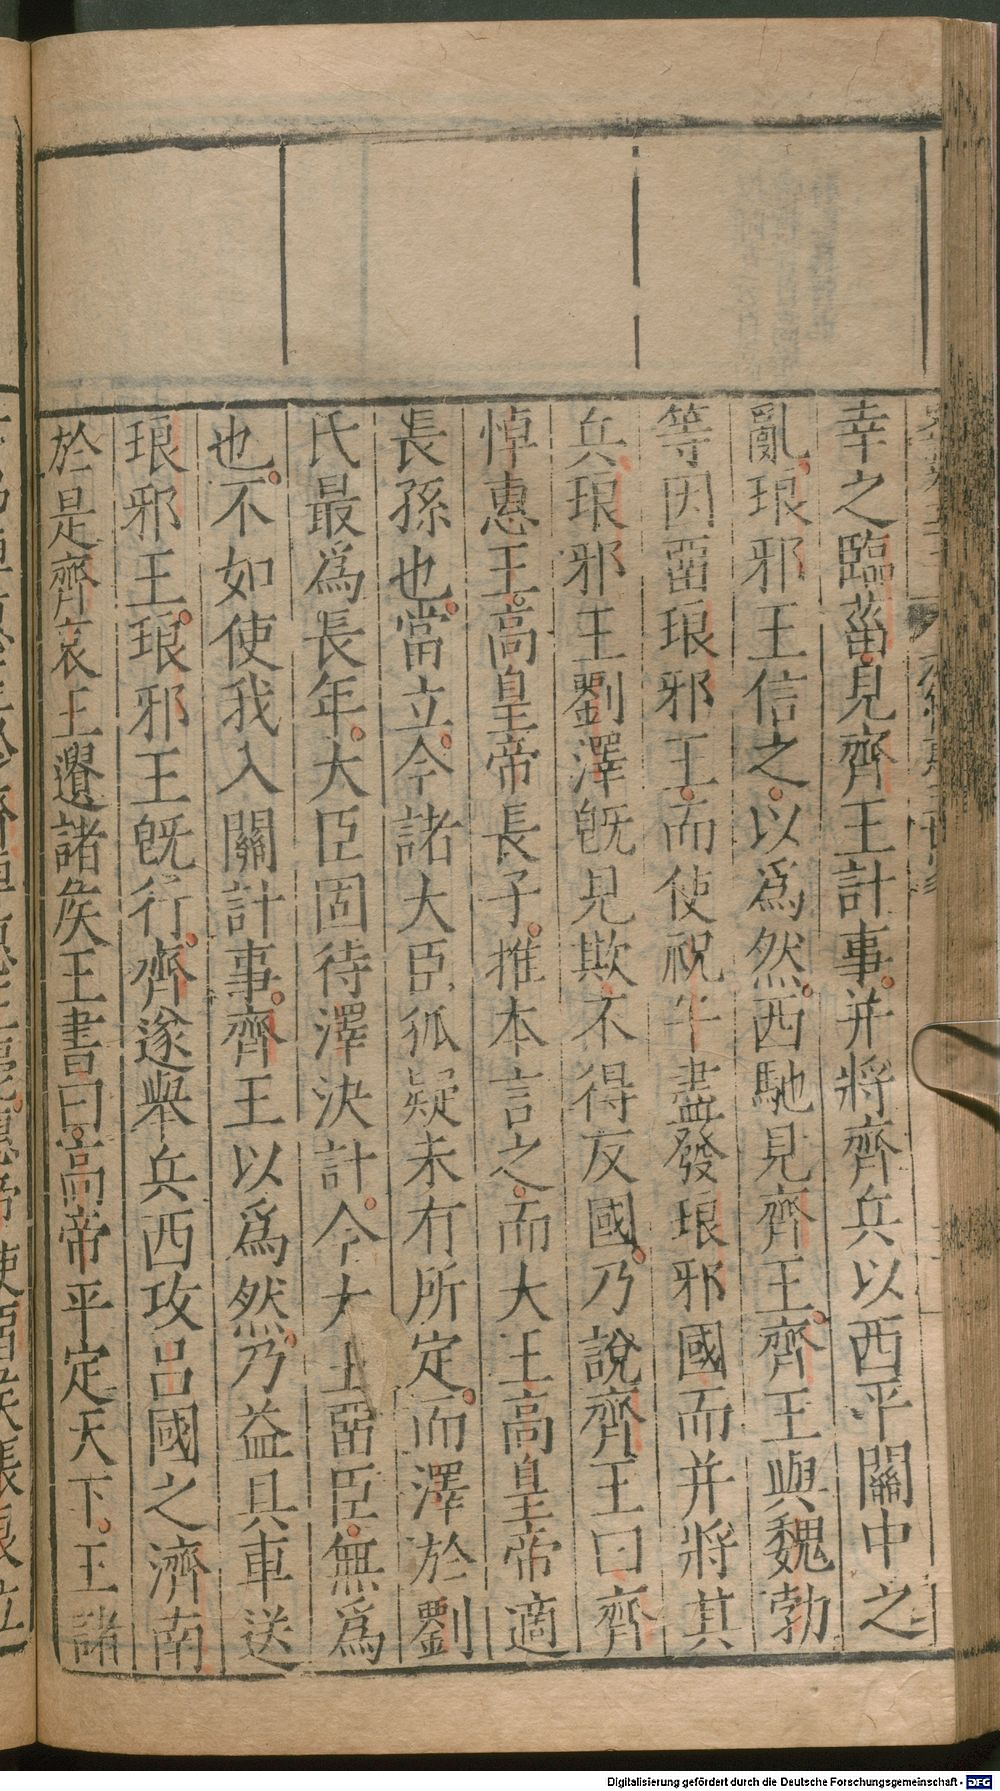 幸之臨菑見齊王計事并將齊兵以西平關中之
亂琅邪王信之以爲然西馳見齊王齊王與魏勃
等因畱琅邪王而使祝午盡發琅邪國而并將其
兵琅邪王劉澤旣見欺不得反國乃說齊王曰齊
悼惠王高皇帝長子推本言之而大王高皇帝適
長孫也當立今諸大臣狐疑未有所定而澤於劉
氏最爲長年大臣固待澤決計今大王畱臣無爲
也不如使我入關計事齊王以爲然乃益具車送
琅邪王琅邪王旣行齊遂舉兵西攻呂國之濟南
於是齊哀王遺諸侯王書曰高帝平定天下王諸
Digitalisierung gefördert durch die Deutsche Forschungsgemeinschaft - DFG